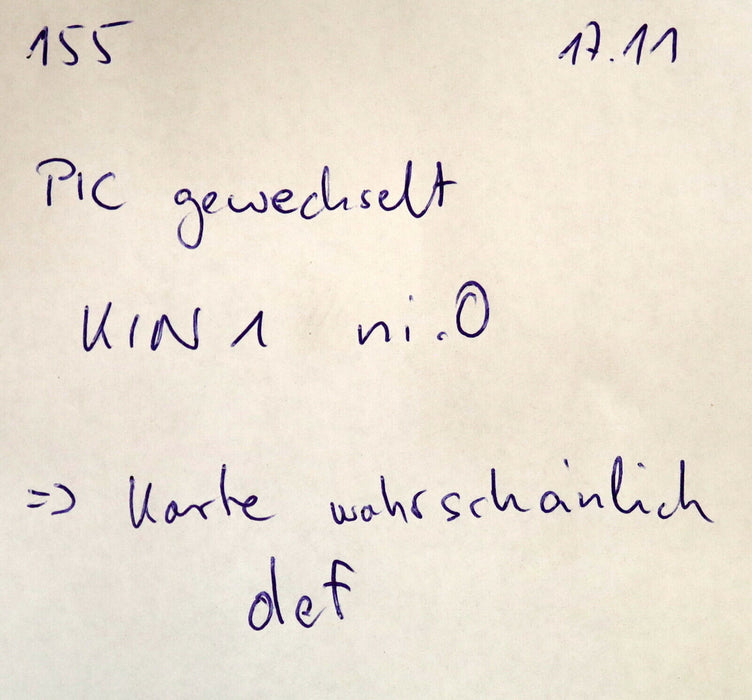 155 17.11
PIC gewechselt
KIN 1 ni.O
=> Karte wahrschänlich
def